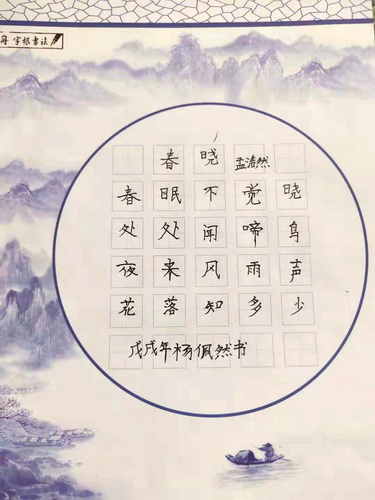 字根书法
春晓 孟浩然
春眠不觉晓
处处闻啼鸟
夜来风雨声
花落知多少
戊戌年杨佩然书